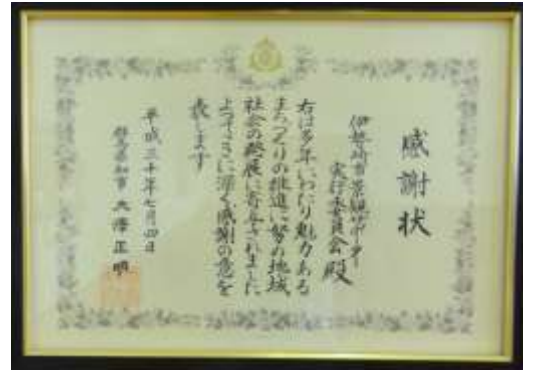 感謝状
伊勢崎市景観サポーター
実行委員会 殿
右は多年にわたり魅力ある
まちづくりの推進に努め地域
社会の発展に寄与されました
よってここに深く感謝の意を
表します
平成三十年七月四日
群馬県知事 大澤正明